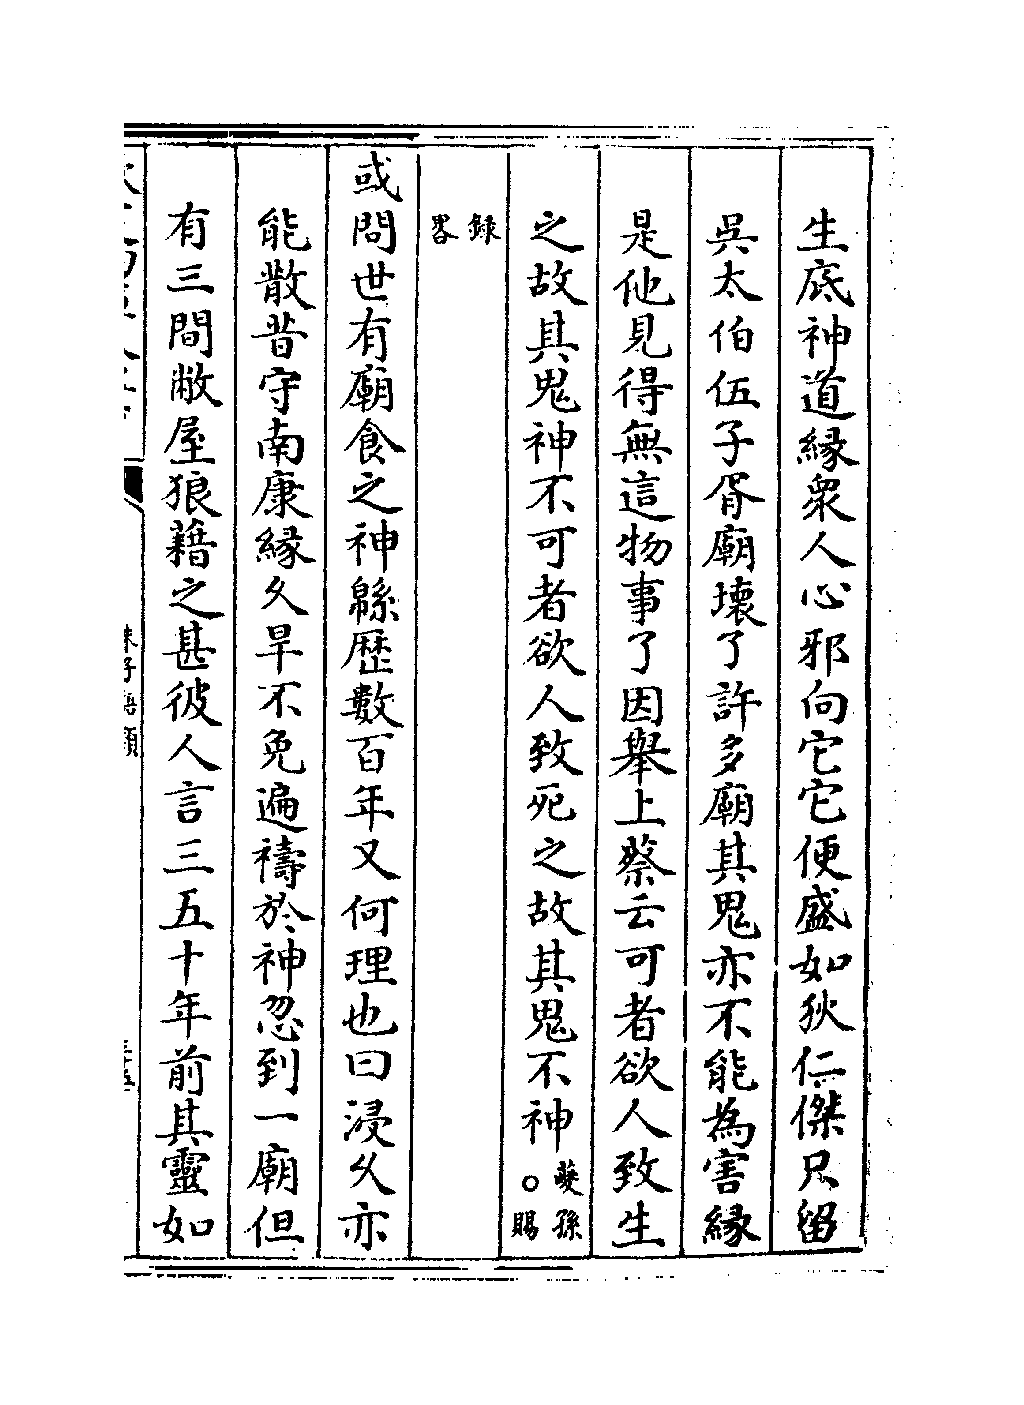 生底神道縁衆人心邪向它它便盛如狄仁傑只留
吳太伯伍子胥廟壞了許多廟其鬼亦不能為害縁
是他見得無這物事了因舉上蔡云可者欲人致生
之故其鬼神不可者欲人致死之故其鬼不神。賜夔孫
録畧
或問世有廟食之神緜歴數百年又何理也曰浸久亦
能散昔守南康縁久旱不免遍禱於神忽到一廟但
有三間敝屋狼藉之甚彼人言三五十年前其靈如
朱子語類
三十五